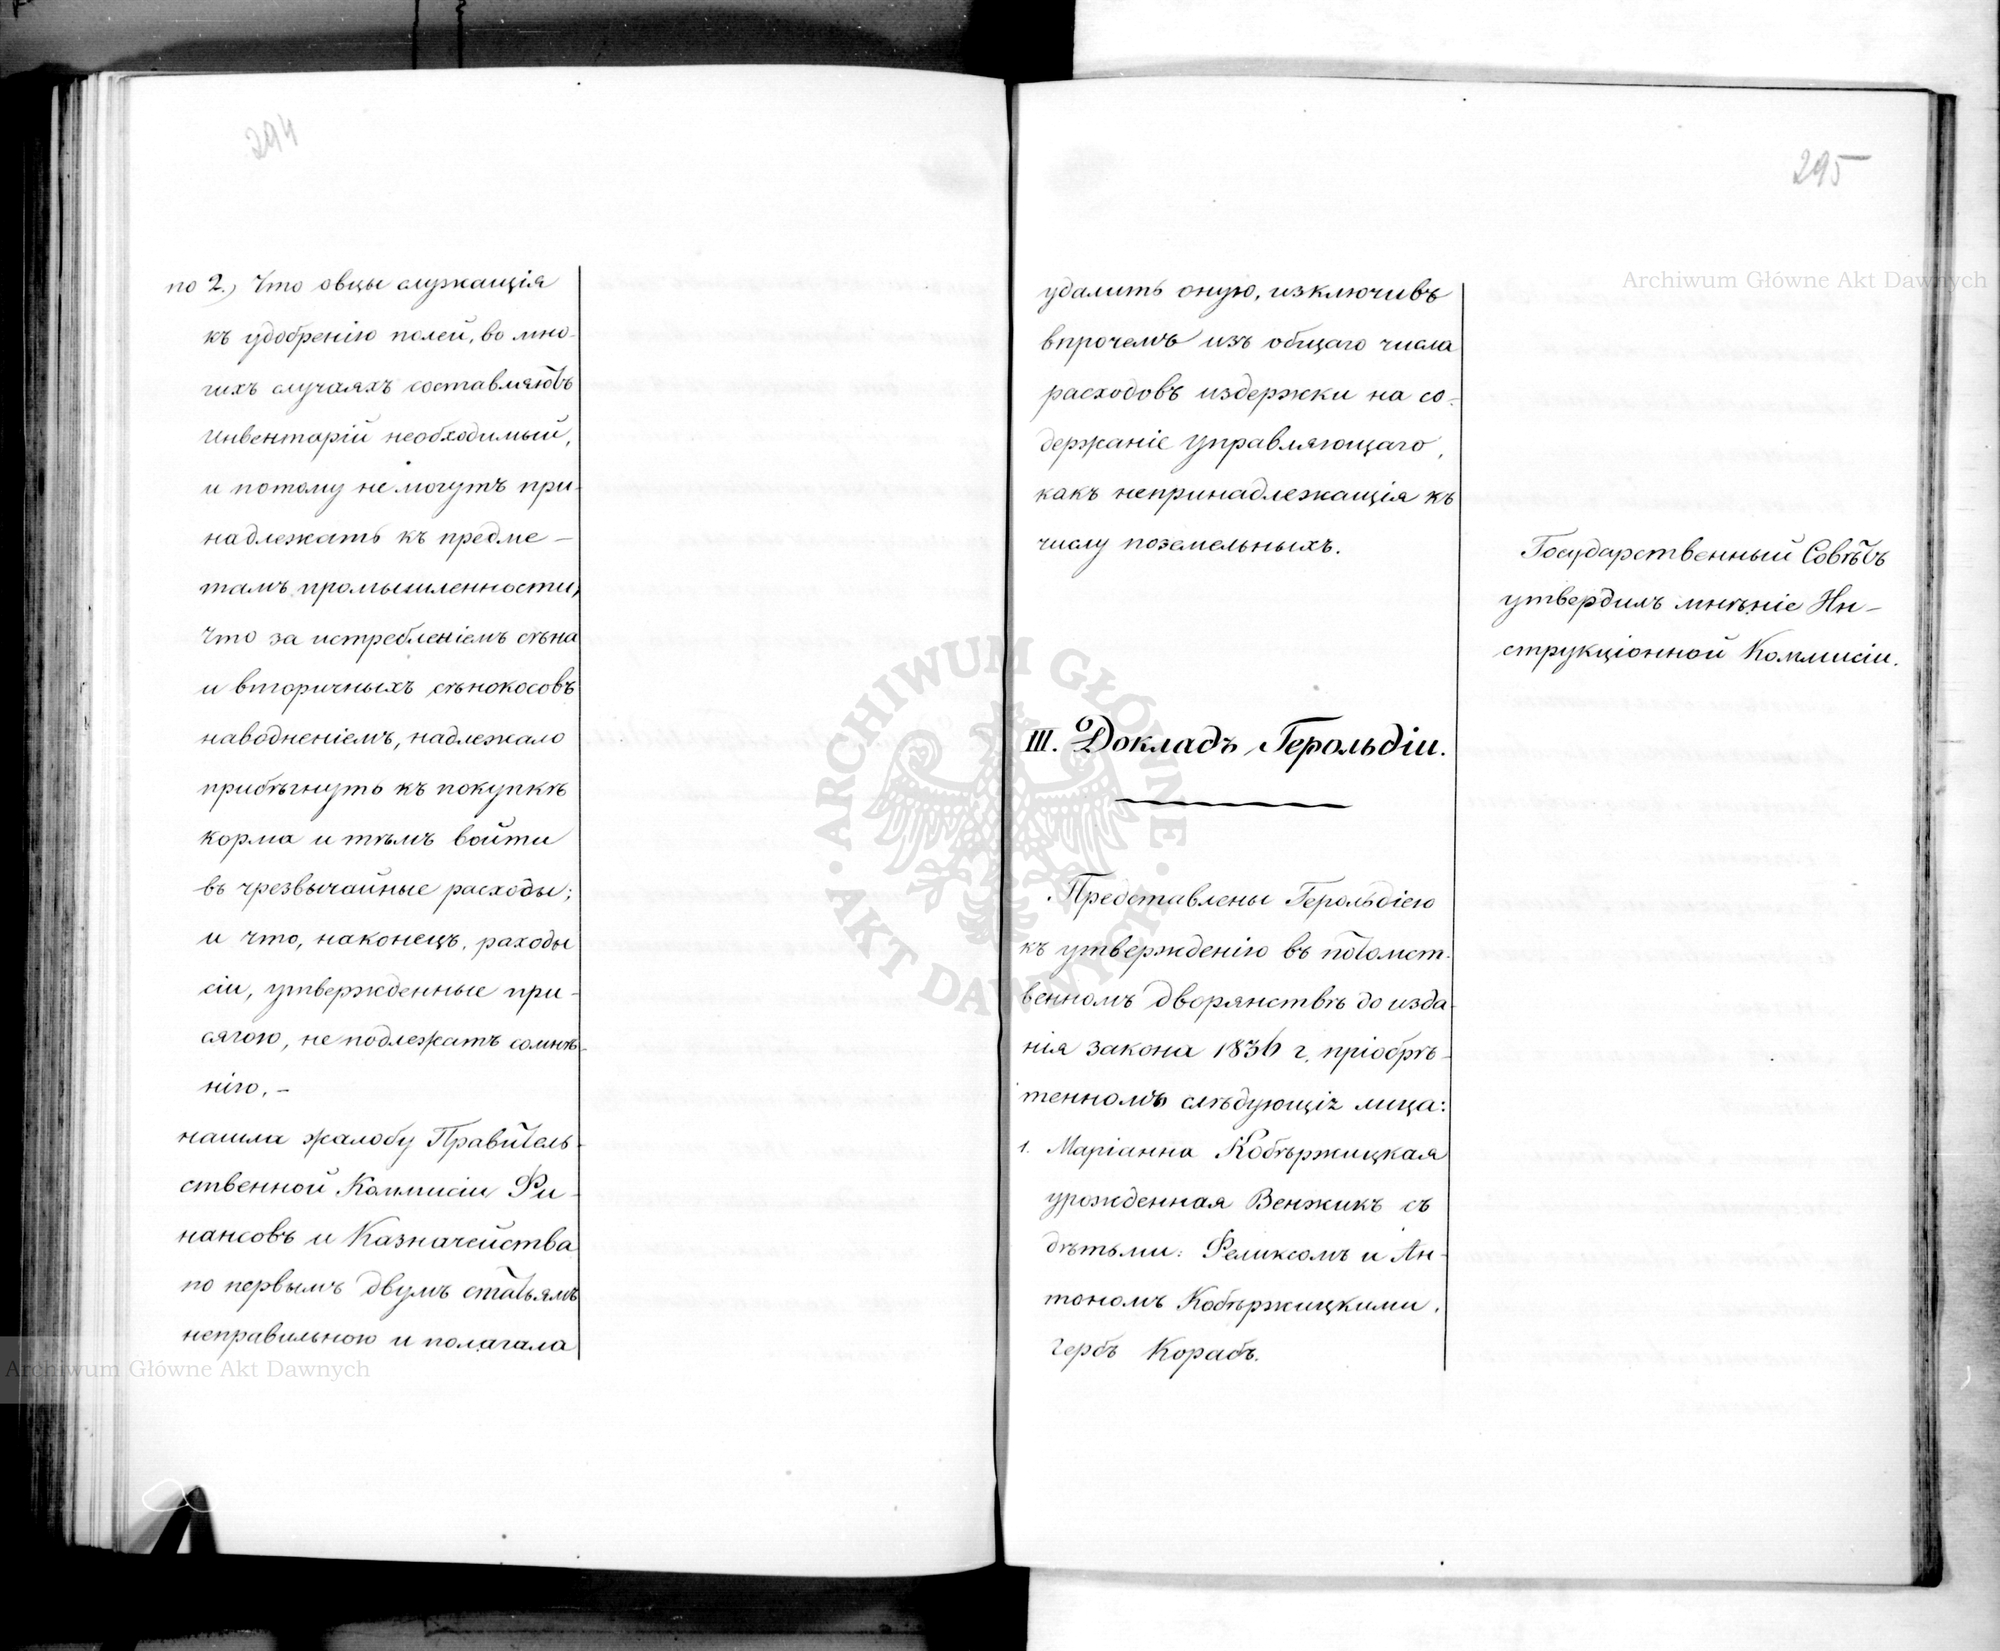 294
по 2.) Что овцы служащія
къ удобренію полей, во мно-
гихъ случаяхъ составляютъ
Инвентарій необходимый,
и потому не могутъ при-
надлежать къ предме-
тамъ промышленности,
Что за истребленіемъ сѣна
и вторичныхъ сѣнокосовъ
наводненіемъ, надлежало
прибѣгнуть къ покупкѣ
корма и тѣмъ войти
въ чрезвычайные расходы;
и что, наконецъ, раходы
сіи, утвержденные при-
сягою, не подлежатъ сомнѣ-
нію. -
нашла жалобу Правитель-
ственной Коммисіи Фи-
нансовъ и Казначейства
по первымъ двумъ статьямъ
неправильною и полагала
295
удалить оную, изключивъ
впрочемъ изъ общаго числа
расходовъ издержки на со-
держаніе Управляющаго,
какъ непринадлежащія къ
числу поземельныхъ.
Государственный Совѣтъ
утвердилъ мнѣніе Ин-
струкціонной Коммисіи.
III. Докладъ Герольдіи.
Представлены Герольдіею
къ утвержденію въ потомст-
венномъ дворянствѣ до изда-
нія закона 1836 г. пріобрѣ-
тенномъ слѣдующія лица:
1. Маріанна Кобѣржицкая
урожденная Венжикъ съ
дѣтьми: Феликсомъ и Ан-
тономъ Кобѣржицкими,
гербъ Корабъ.
Archiwum Główne Akt Dawnych
Archiwum Główne Akt Dawnych
ARCHIWUM GŁÓWNE · AKT DAWNYCH ·